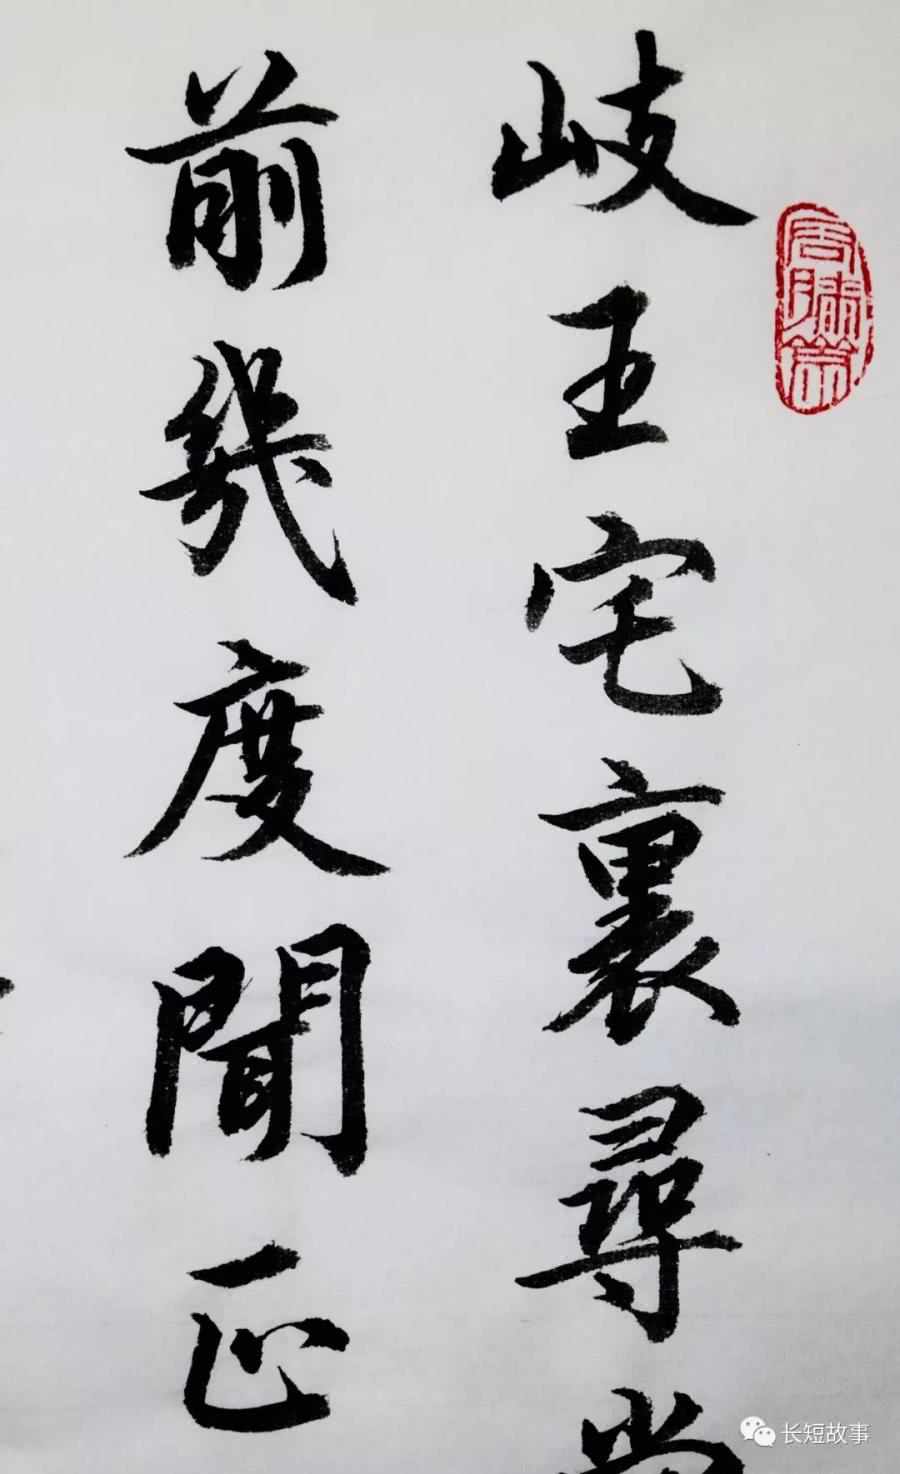 岐王宅裏尋
前幾度聞正
长短故事